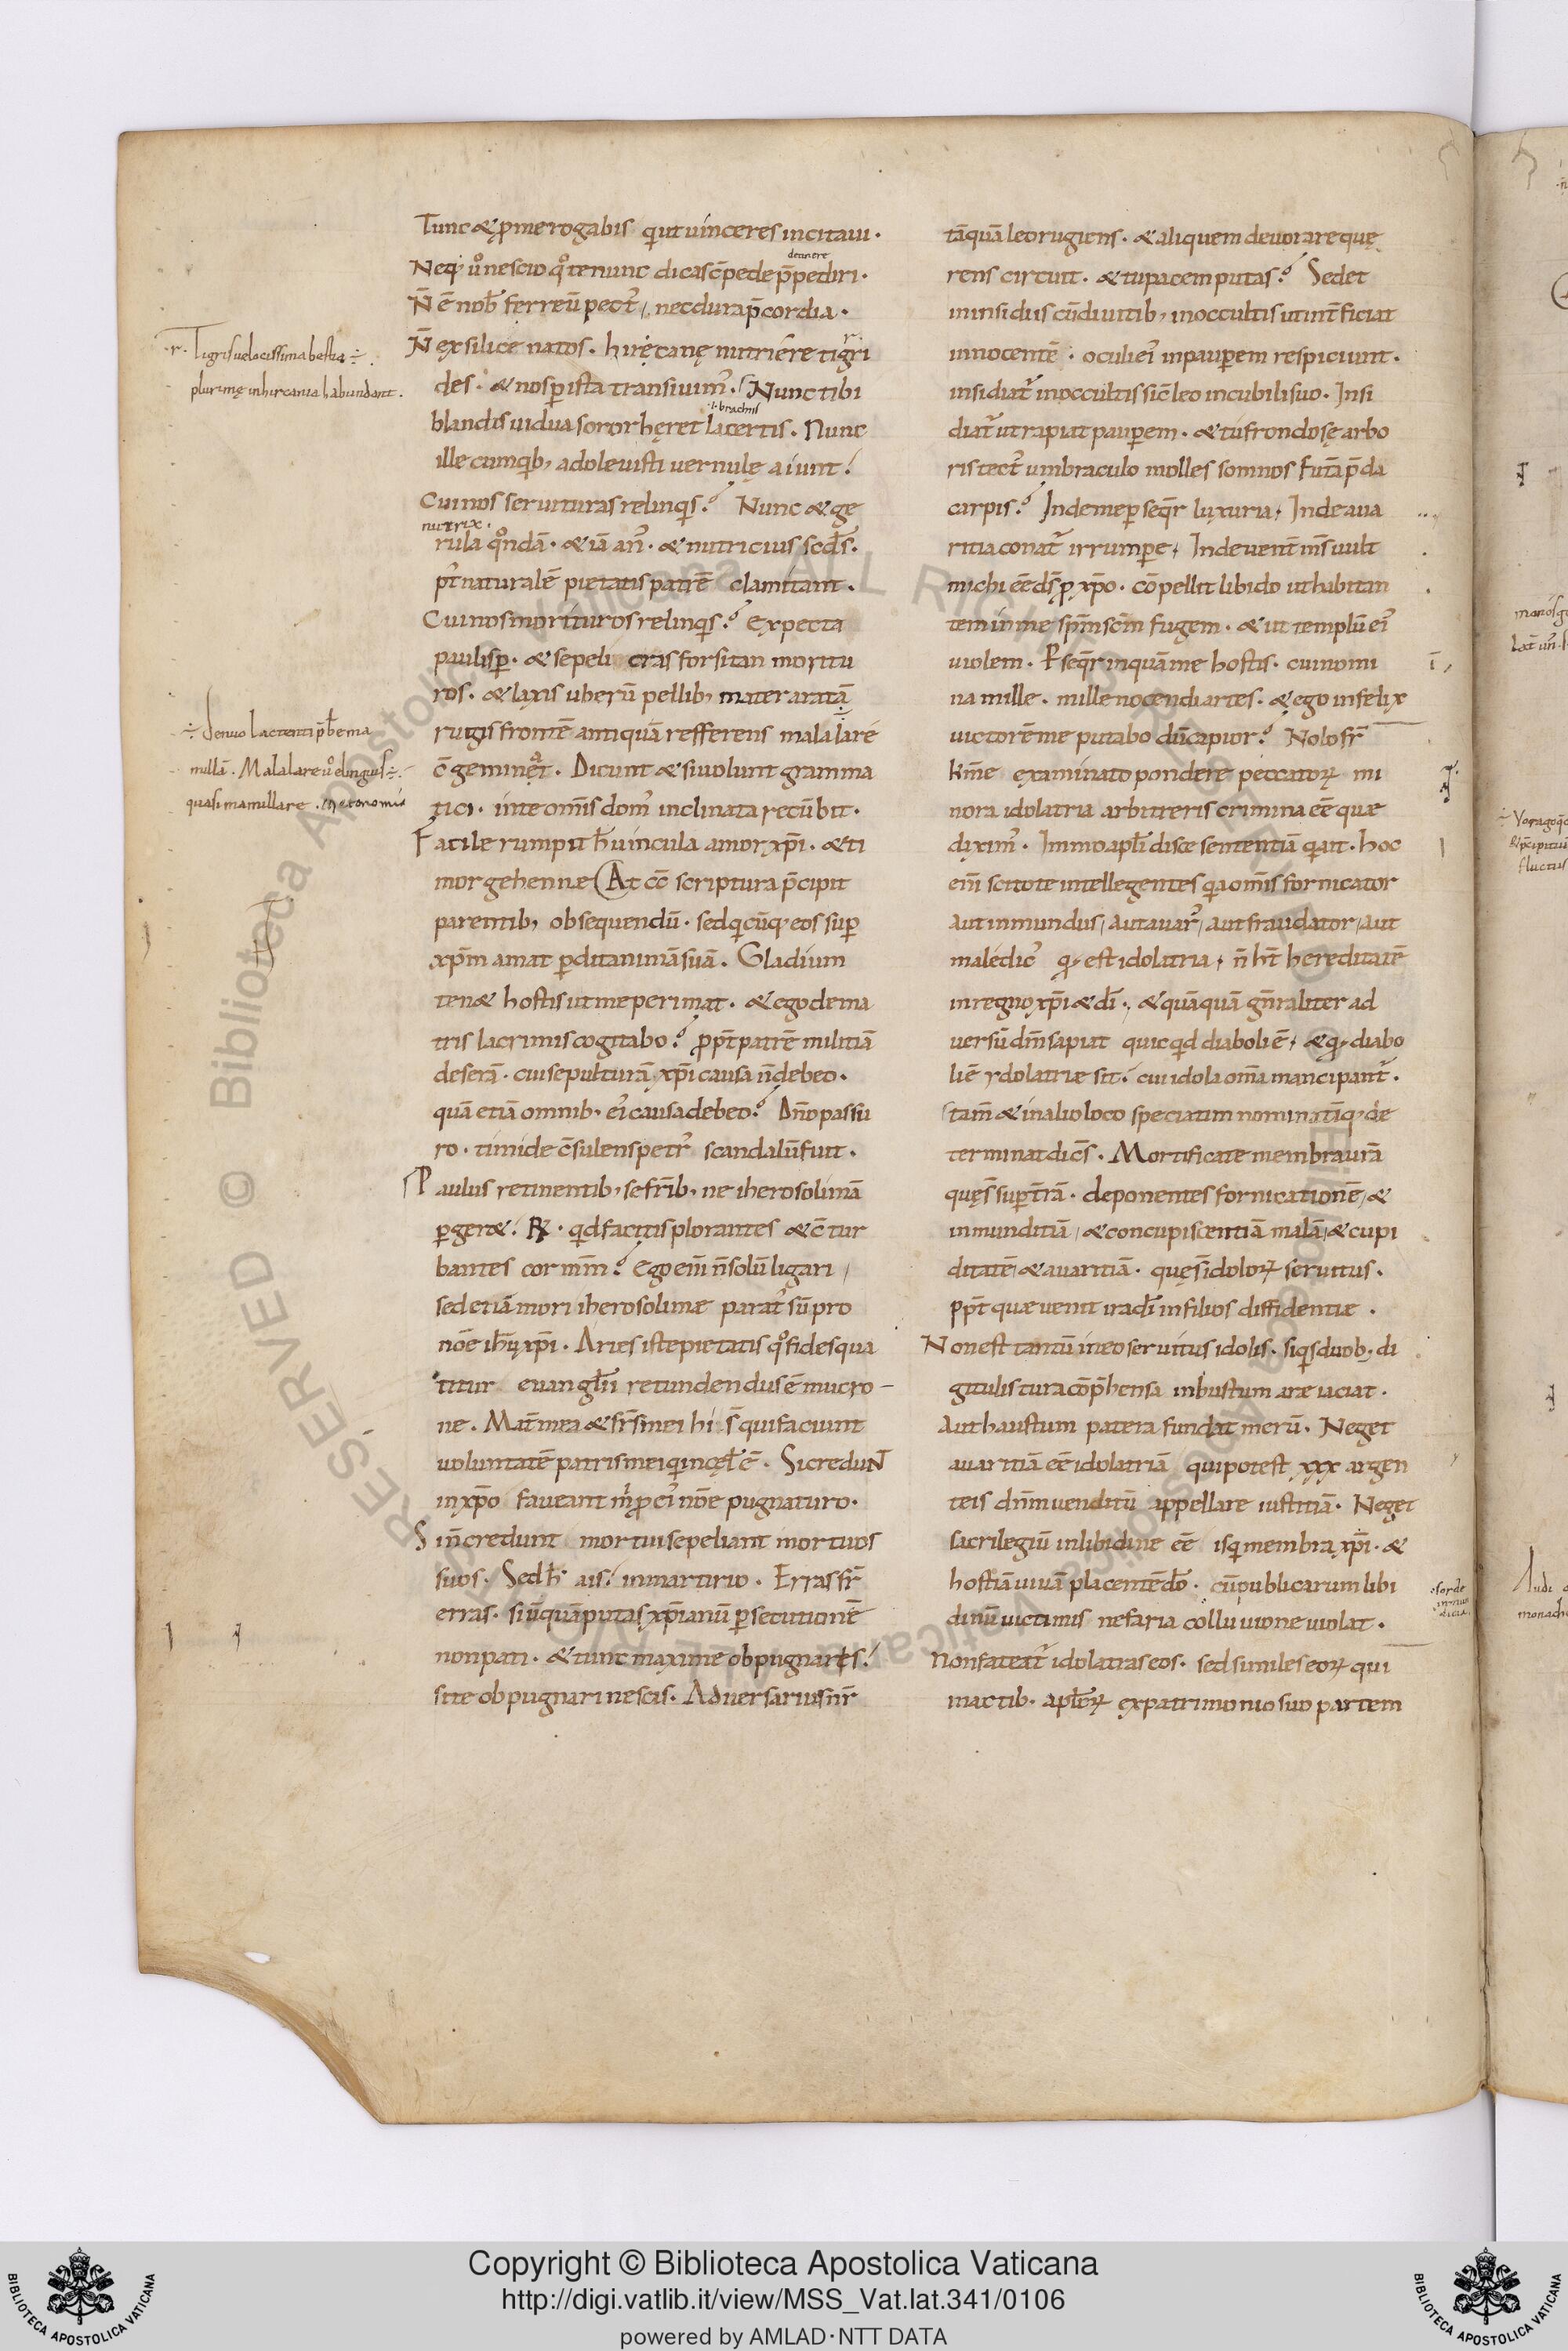 Tunc & ꝓ me rogabis qui ut uinceres incitaui.
detinere
Neq; uͦ nescio qͦ te nunc dicas c̄pede p̄pediri.
N̄ ē nob̄ ferreū pect᾽, nec dura p̄cordia.
N̄ ex silice natos. hirẹcanę nutriēre tigri
des. & nos ꝑ ista transiuim᾽. Nunc tibi
.i. brachiis
blandis uidua soror hęret lacertis. Nunc
ille cum qib; adoleuisti uernulę aiunt.
Cui nos seruituras relinqis? Nunc & ge
nutrix.
rula qͦndā. & iā an᾽. & nutricius secds̄.
pt᾽ naturalē pietatis patrē clamitant.
Cui nos morituros relinqis? Expecta
paulisꝑ. & sepeli cras forsitan moritu
ros. & laxis uberū pellib; mater aratā
rugis frontē antiquā refferens mala lare
c̄geminęt. Dicunt & si uolunt gramma
tici. in te om̄is dom᾽ inclinata recūbit.
Facile rumpit h̄ uincula amor xp̄i. & ti
mor gehennæ At cc̄ scriptura p̄cipit
parentib; obsequendū. sed qicūq; eos suꝑ
xp̄m amat ꝑdit animā suā. Gladium
ten& hostis ut me perimat. & ego de ma
tris lacrimis cogitabo? ꝓpt̄ patrē militiā
deserā. cui sepulturā xp̄i causa n̄ debeo.
quā etiā omnib; ei᾽ causa debeo? Dn̄o passu
ro. timide c̄sulens petr᾽ scandalū fuit.
Paulus retinentib; se fr̄ib; ne iherosolimā
ꝑger&. R̄. qid facitis plorantes & c̄tur
bantes cor mm̄? Ego em̄ n̄ solū ligari,
sed etiā mori iherosolimæ parat᾽ sū pro
nōe ih̄u xp̄i. Aries iste pietatis qͦ fides qua
titur euanglii retundendus ē mucro-
ne. Mat̄ mea & fr̄s mei hi s̄ qui faciunt
uoluntatē patris mei qi in cęl̄ ē. Si creduN̄
in xp̄o faueant m̄ ꝓ ei᾽ nōe pugnaturo.
Si n̄ credunt mortui sepeliant mortuos
suos. Sed h̄ ais. in martirio. Erras fr̄
erras. si ūquā putas xp̄ianū ꝑsecutionē
non pati. & tunc maxime obpugnares.
si te obpugnari nescis. Aduersarius nr̄
.r. Tigris uelocissima bestia ÷.
plurimę in hircania habundant.
÷ denuo lactenti p̄be ma
millā. Malalare uͦ elinguis ÷
quasi mamillare. metonomia
tāquā leo rugiens. & aliquem deuorare quę
rens circuit. & tu pacem putas? Sedet
in insidiis cū diuitib; in occultis ut int̄ficiat
innocentē. oculi ei᾽ in pauꝑem respiciunt.
insidiat᾽ in occultis sic̄ leo in cubili suo. Insi
diat᾽ ut rapiat pauꝑem. & tu frondosę arbo
ris tect᾽ umbraculo molles somnos fut᾽a p̄da
carpis? Inde me ꝑseq̄r luxuria, Inde aua
ritia conat᾽ irrumꝑe, Inde vent̄ ms̄ uult
michi eē ds̄ ꝓ xp̄o. cōpellit libido ut habitan
tem in me sp̄m scm̄ fugem. & ut templū ei᾽
uiolem. ꝑseq̄r inquā me hostis. cui nomi
na mille. mille nocendi artes. & ego infelix
uictorē me putabo dū capior? Nolo fr̄
km̄e examinato pondere peccatoꝝ mi
nora idolatria arbitreris crimina eē quæ
dixim᾽. Immo apl̄i disce sententiā qi ait. hoc
em̄ scitote intellegentes qia om̄is fornicator
aut inmundus, aut auar᾽, aut fraudator, aut
maledic᾽ qͥ est idolatria, n̄ ht̄ hereditatē
in regno xp̄i & dī. & quāquā gn̄raliter ad
uersū dm̄ sapiat quicqid diaboli ē, & qͥ diabo
li ē ydolatriæ sit. cui idola om̄a mancipant᾽.
tam̄ & in alio loco speciatim nominatīq; de
terminat dicn̄s. Mortificate membra ur̄a
quę s̄ suꝑ t̄rā. deponentes fornicationē, &
inmunditiā, & concupiscentiā malā, & cupi
ditatē, & auaritiā. quę s̄ idoloꝝ seruitus.
ꝓpt̄ quæ uenit ira dī in filios diffidentiæ.
Non est tantū in eo seruitus idolis. si qis duob; di
gitulis tura cōp̄hensa in bustum aræ iaciat.
Aut haustum patera fundat merū. Neget
auaritiā eē idolatriā qui potest xxx argen
teis dn̄m uenditū appellare iustitiā. Neget
sacrilegiū in libidine eē is qi membra xp̄i. &
hostiā uiuā placentē dō. cū publicarum libi
dinū uictimis nefaria colluuione uiolat.
Non fateat᾽ idolatras eos. sed similes eoꝝ qui
in actib. apl̄oꝝ ex patrimonio suo partem
Copyright © Biblioteca Apostolica Vaticana
http://digi.vatlib.it/view/MSS_Vat.lat.341/0106
powered by AMLAD·NTT DATA